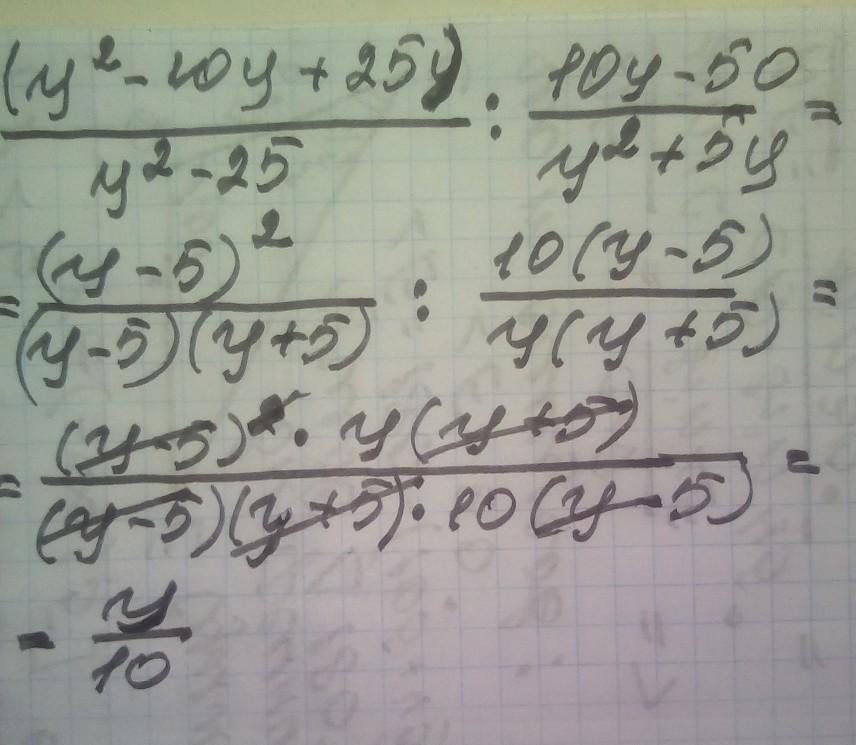 (y² - 10y + 25)/(y² - 25) : (10y - 50)/(y² + 5y) =
= (y - 5)²/((y - 5)(y + 5)) : 10(y - 5)/(y(y + 5)) =
= ((y - 5)² · y(y + 5))/((y - 5)(y + 5) : 10(y - 5)) =
= y/10